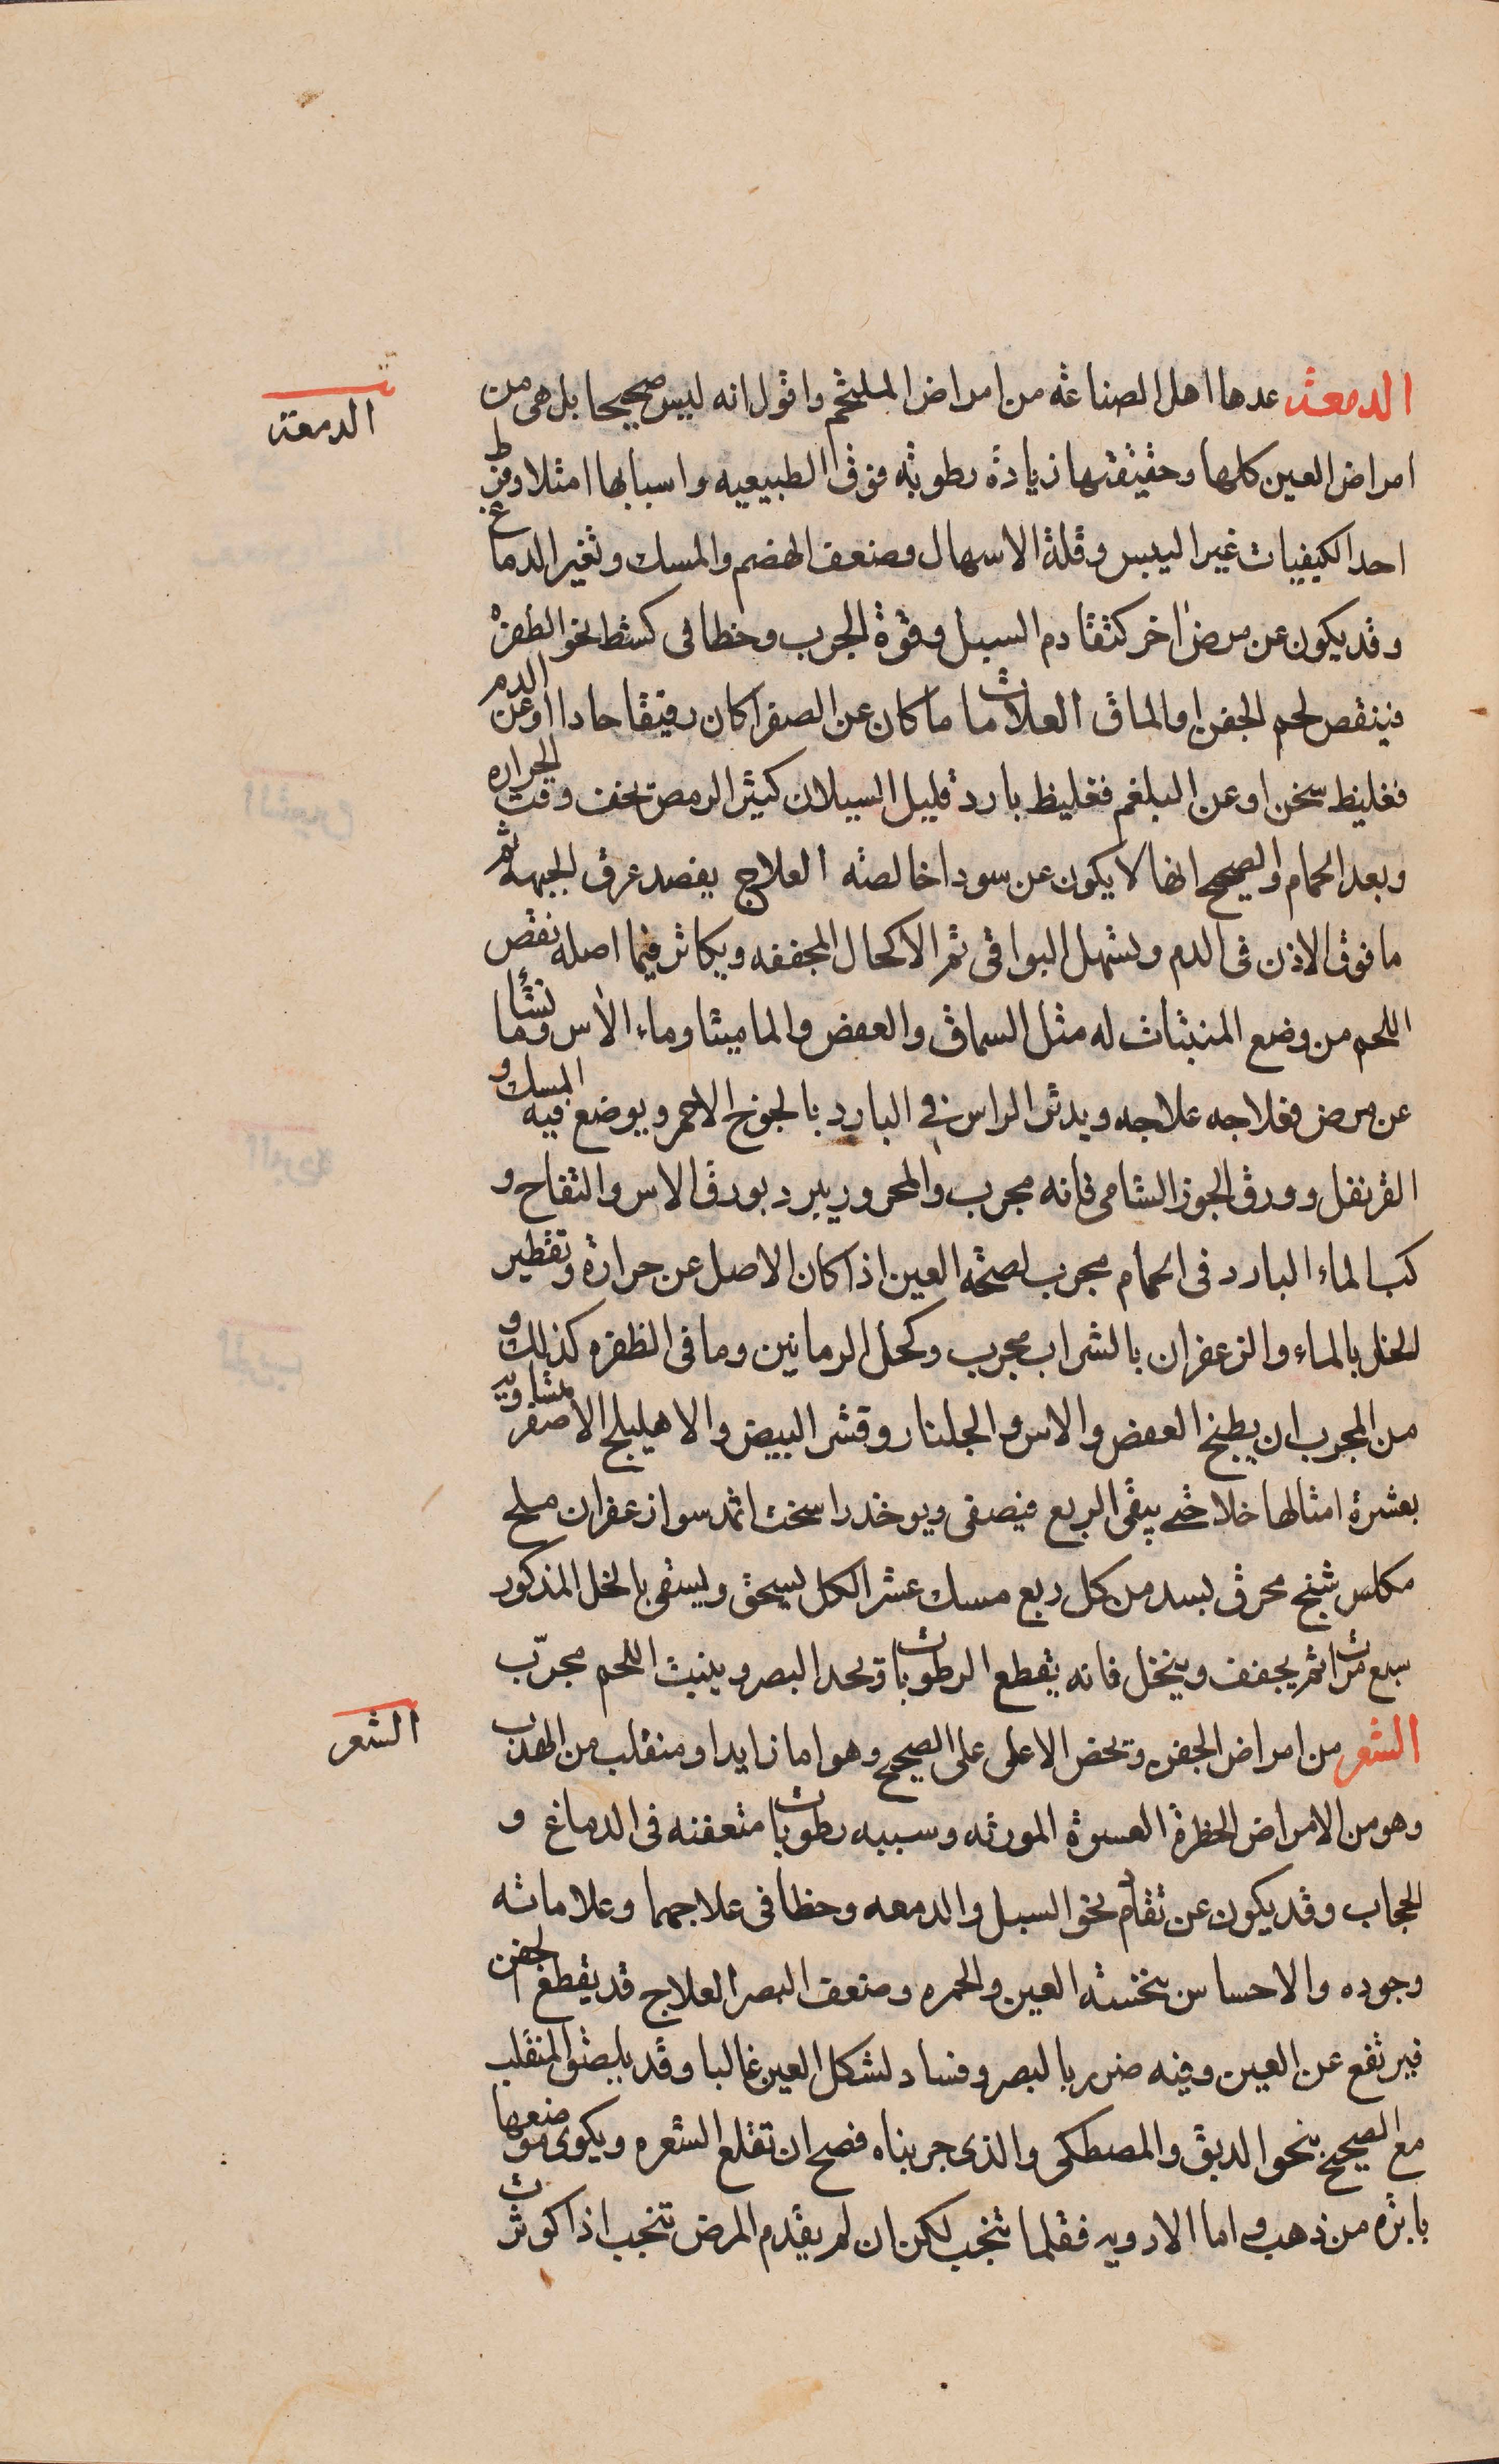 الدمعة عدها اهل الصناعة من امراض الملتحم واقول انه ليس صحيحا بل هى من
الدمعة
امراض العين كلها وحقيقتها زيادة رطوبة فوق الطبيعيه واسبابها امتلا وفرط
احد الكيفيات غير اليبس وقلة الاسهال وضعف الهضم والمسك وتغير الدماغ
وقد يكون عن مرض اخر كتقادم السبل وقوة الجرب وخطا فى كشط نحو الظفره
فينقص لحم الجفن او الماق العلامات ما كان عن الصفرا كان رقيقا حادا او عن الدم
فغليظ سخن او عن البلغم فغليظ بارد قليل السيلان كثير الرمص تخف وقت الحراره
وبعد الحمام والصحيح انها لا يكون عن سودا خالصة العلاج يفصد عرق الجبهة ثم
ما فوق الاذن فى الدم وتسهل البواقى ثم الاكحال المجففه ويكاثر فيما اصله نقص
اللحم من وضع المنبتات له مثل السماق والعفص والماميثا وماء الاس وما نشأ
عن مرض فعلاجه علاجه ويدثر الراس فى البارد بالجوخ الاحمر ويوضع فيه المسك و
القرنفل وورق الجوز الشامى فانه مجرب والمحرور يبرد بورق الاس والتفاح و
كب الماء البارد فى الحمام مجرب لصحة العين اذا كان الاصل عن حرارة وتقطير
الخل بالماء والزعفران بالشراب مجرب وكحل الرمانين وما فى الظفره كذلك و
من المجرب ان يطبخ العفص والاس والجلنار وقشر البيض والاهليلج الاصفر متساويه
بعشرة امثالها خلا حتى يبقى الربع فيصفى ويوخذ راسخت اثمد سوا زعفران ملح
مكلس شنج محرق بسد من كل ربع مسك عشر الكل يسحق ويسقى بالخل المذكور
سبع مرات ثم يجفف وينخل فانه يقطع الرطوبات ويحد البصر وينبت اللحم مجرّب
الشعر من امراض الجفن ويخص الاعلى على الصحيح وهو اما زايد او منقلب من الهدب
الشعر
وهو من الامراض الخطرة العسرة المورثه وسببه رطوبات متعفنه فى الدماغ و
الحجاب وقد يكون عن تقادم نحو السبل والدمعه وخطا فى علاجهما وعلاماته
وجوده والاحساس بنخسه العين والحمره وضعف البصر العلاج قد يقطع الجفن
فيرتفع عن العين وفيه ضرر بالبصر وفساد لشكل العين غالبا وقد يلصق المنقلب
مع الصحيح بنحو الدبق والمصطكى والذى جربناه فصح ان تقلع الشعره ويكوى موضعها
بابره من ذهب واما الادويه فقلما تنجب لكن ان لم يقدم المرض تنجب اذا كوثرت